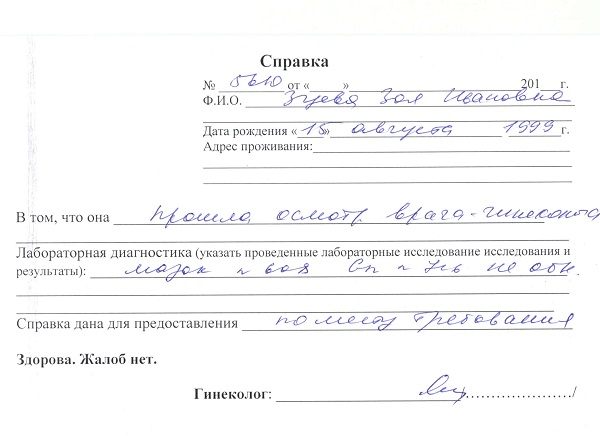 Справка
№ 5610 от «____»____________ 201__ г.
Ф.И.О. Зуева Зоя Ивановна
Дата рождения «15» августа 1999 г.
Адрес проживания:
В том, что она прошла осмотр врача-гинеколога
Лабораторная диагностика (указать проведенные лабораторные исследование исследования и
результаты): мазок на не обн.
Справка дана для предоставления по месту требования
Здорова. Жалоб нет.
Гинеколог: ____________________/